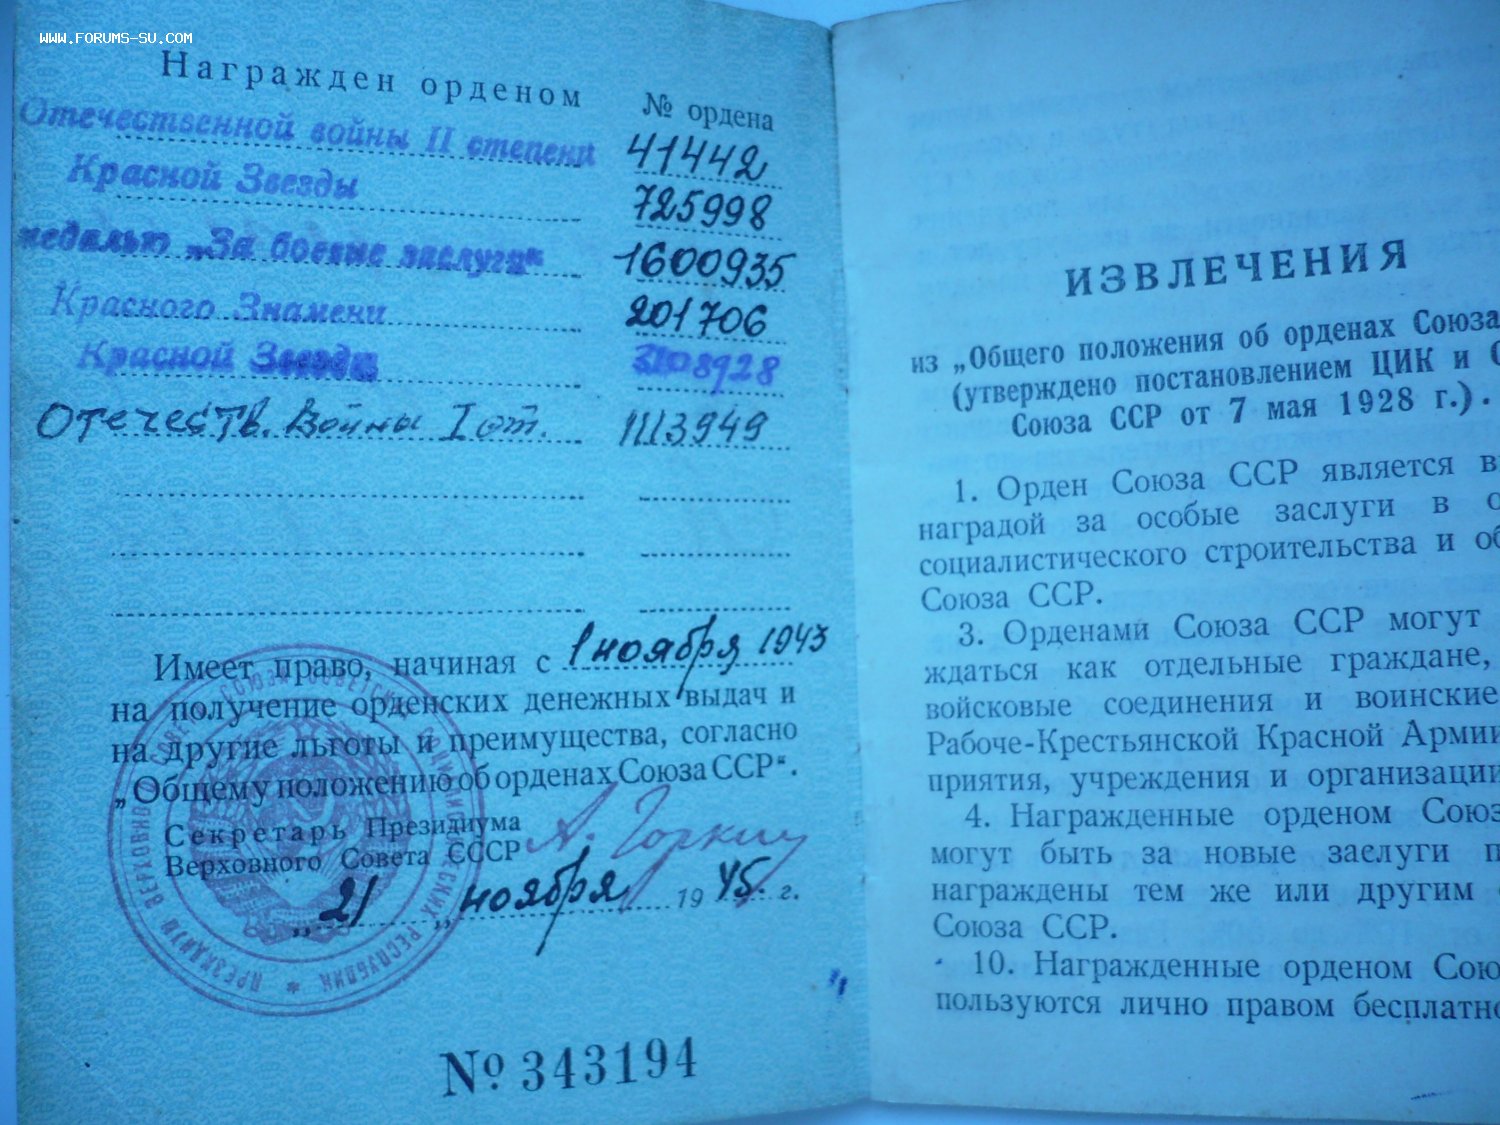 www.forums-su.com
Награжден орденом № ордена
Отечественной войны II степени 41442
Красной Звезды 725998
медалью „За боевые заслуги“ 1600935
Красного Знамени 201706
Красной Звезды
Отечеств. Войны I ст. 1113949
Имеет право, начиная с 1 ноября 1943
на получение орденских денежных выдач и
на другие льготы и преимущества, согласно
„Общему положению об орденах Союза ССР“.
Секретарь Президиума
Верховного Совета СССР А. Горкин
„21„ ноября 1945. г.
№ 343194
ИЗВЛЕЧЕНИЯ
из „Общего положения об орденах Союза
(утверждено постановлением ЦИК и С
Союза ССР от 7 мая 1928 г.).
1. Орден Союза ССР является в
наградой за особые заслуги в
социалистического строительства и об
Союза ССР.
3. Орденами Союза ССР могут
ждаться как отдельные граждане,
войсковые соединения и воинские
Рабоче-Крестьянской Красной Армии
приятия, учреждения и организации
4. Награжденные орденом Союз
могут быть за новые заслуги п
награждены тем же или другим
Союза ССР.
10. Награжденные орденом Сою
пользуются лично правом бесплатно